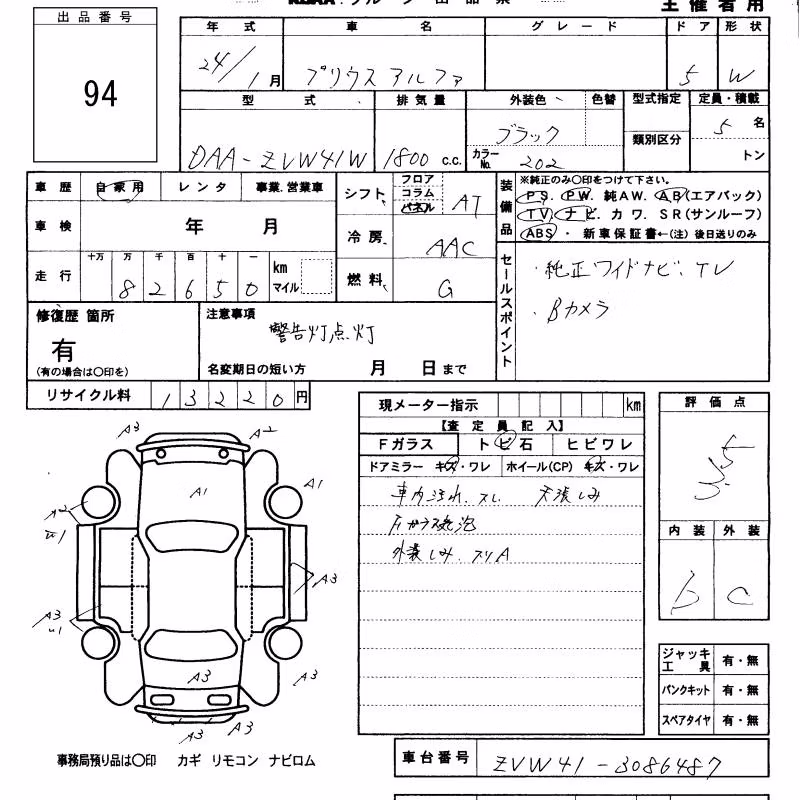 主催者用
出品番号
94
年式 車名 グレード ドア 形状
24/1月 プリウスアルファ 5 W
型式 排気量 外装色 色替 型式指定 定員・積載
類別区分
DAA-ZVW41W 1800 c.c. ブラック 5 名
カラーNo. 202 トン
車歴 自家用 レンタ 事業.営業車
車検 年 月
走行 十万 万 千 百 十 一 km マイル
8 2 6 5 0
シフト フロア コラム パネル AT
冷房 AAC
燃料 G
装備品
※純正のみ〇印をつけて下さい。
PS. PW. 純AW. AB(エアバック)
TV. ナビ. カワ. SR(サンルーフ)
ABS ・ 新車保証書←(注)後日送りのみ
セールスポイント
・純正ワイドナビ、TV
・Bカメラ
修復歴 箇所
有
(有の場合は〇印を)
注意事項
警告灯点灯
名変期日の短い方 月 日まで
リサイクル料 13220円
現メーター指示 km
【査定員記入】
Fガラス トビ石 ヒビワレ
ドアミラー キズ・ワレ ホイール(CP) キズ・ワレ
車内汚れ.スレ 天張しみ
外装しみ.スリA
評価点
3.5
内装 外装
b C
A3 A2
A1
A1
A2
A3
A3
A3
A3
A3 A3
ジャッキ工具 有・無
パンクキット 有・無
スペアタイヤ 有・無
事務局預り品は〇印 カギ リモコン ナビロム
車台番号 ZVW41-3086487